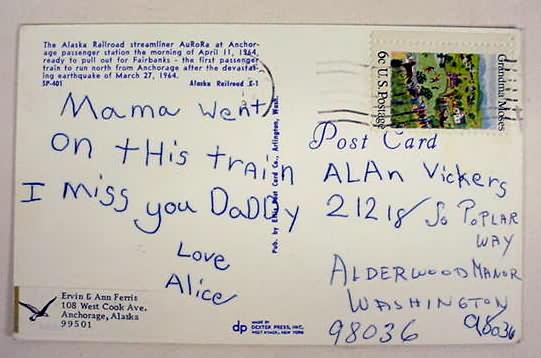 The Alaska Railroad streamliner AuRoRa at Anchor-
age passenger station the morning of April 11, 1964,
ready to pull out for Fairbanks - the first passenger
train to run north from Anchorage after the devastat-
ing earthquake of March 27, 1964.
SP-401 Alaska Railroad E-1
Mama went
on tHis train
I miss you DaDDy
Love
Alice
Ervin & Ann Ferris
108 West Cook Ave.
Anchorage, Alaska
99501
Pub. by Ellis Post Card Co., Arlington, Wash.
dp MADE BY
DEXTER PRESS, INC.
WEST NYACK, NEW YORK
6c U.S. Postage
Grandma Moses
Post Card
ALAn Vickers
21218 So POPLAR
WAY
ALDERWOOD MANOR
WASHINGTON
98036 98036